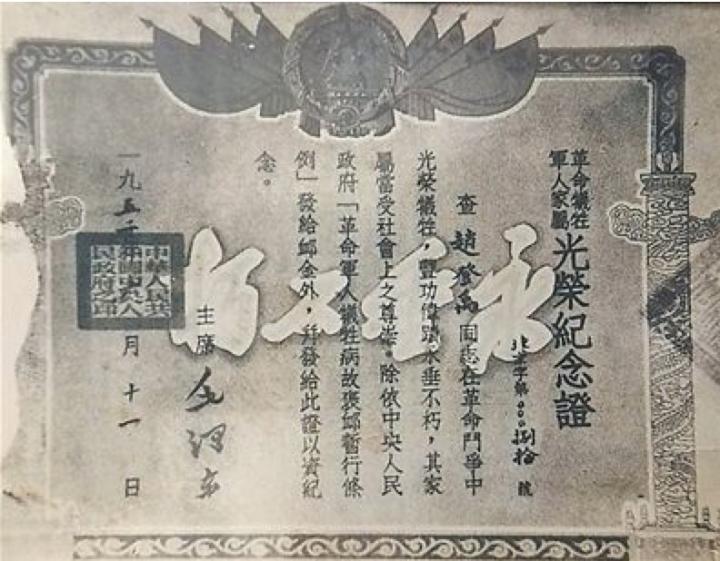 革命犧牲
軍人家屬
光榮紀念證
北京字第〇〇〇捌拾號
查趙登禹同志在革命鬥爭中
光榮犧牲，豐功偉蹟永垂不朽，其家
屬當受社會上之尊崇。除依中央人民
政府「革命軍人犧牲病故褒卹暫行條
例」發給卹金外，幷發給此證以資紀
念。
永垂不朽
主席 毛澤東
一九五二年 月十一日
中華人民共
和國中央人
民政府之印